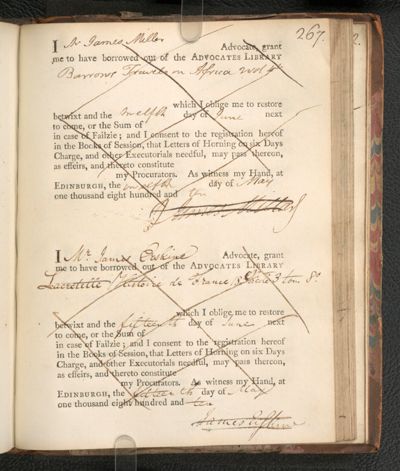 267.
I Mr James Miller Advocate, grant
me to have borrowed out of the ADVOCATES LIBRARY
Barrows Travels in Africa 2 vol 4to
which I oblige me to restore
betwixt and the twelfth day of June next
to come, or the Sum of
in case of Failzie; and I consent to the registration hereof
in the Books of Session, that Letters of Horning on six Days
Charge, and other Executorials needful, may pass thereon,
as effeirs, and thereto constitute
my Procurators. As witness my Hand, at
EDINBURGH, the twelfth day of May
one thousand eight hundred and ten
James Miller
I Mr. James Erskine Advocate, grant
me to have borrowed out of the ADVOCATES LIBRARY
Lacretelle Histoire de France, Siecle 3 tom 8o
which I oblige me to restore
betwixt and the fifteenth day of June next
to come, or the Sum of
in case of Failzie; and I consent to the registration hereof
in the Books of Session, that Letters of Horning on six Days
Charge, and other Executorials needful, may pass thereon,
as effeirs, and thereto constitute
my Procurators. As witness my Hand, at
EDINBURGH, the fifteenth day of May
one thousand eight hundred and ten
James Erskine